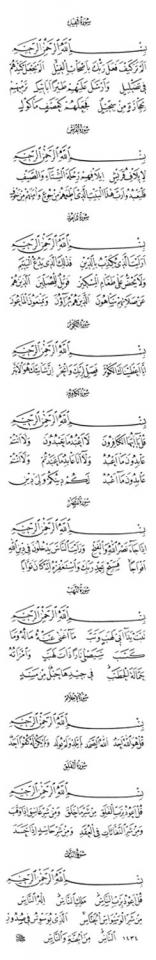 سورة الفيل
بسم الله الرحمن الرحيم
ألم تر كيف فعل ربك بأصحاب الفيل ألم يجعل كيدهم
في تضليل وأرسل عليهم طيرا أبابيل ترميهم
بحجارة من سجيل فجعلهم كعصف مأكول
بسم الله الرحمن الرحيم
لإيلاف قريش إيلافهم رحلة الشتاء والصيف
فليعبدوا رب هذا البيت الذي أطعمهم من جوع وآمنهم من خوف
بسم الله الرحمن الرحيم
أرأيت الذي يكذب بالدين فذلك الذي يدع اليتيم
ولا يحض على طعام المسكين فويل للمصلين الذين هم
عن صلاتهم ساهون الذين هم يراؤون ويمنعون الماعون
سورة الكوثر
بسم الله الرحمن الرحيم
إنا أعطيناك الكوثر فصل لربك وانحر إن شانئك هو الأبتر
بسم الله الرحمن الرحيم
قل يا أيها الكافرون لا أعبد ما تعبدون ولا أنتم
عابدون ما أعبد ولا أنا عابد ما عبدتم ولا أنتم
عابدون ما أعبد لكم دينكم ولي دين
بسم الله الرحمن الرحيم
إذا جاء نصر الله والفتح ورأيت الناس يدخلون في دين الله
أفواجا فسبح بحمد ربك واستغفره إنه كان توابا
بسم الله الرحمن الرحيم
تبت يدا أبي لهب وتب ما أغنى عنه ماله وما
كسب سيصلى نارا ذات لهب وامرأته
حمالة الحطب في جيدها حبل من مسد
بسم الله الرحمن الرحيم
قل هو الله أحد الله الصمد لم يلد ولم يولد ولم يكن له كفوا أحد
سورة الفلق
بسم الله الرحمن الرحيم
قل أعوذ برب الفلق من شر ما خلق ومن شر غاسق إذا وقب
ومن شر النفاثات في العقد ومن شر حاسد إذا حسد
بسم الله الرحمن الرحيم
قل أعوذ برب الناس ملك الناس إله الناس
من شر الوسواس الخناس الذي يوسوس في صدور
الناس من الجنة والناس ١٤٣٤